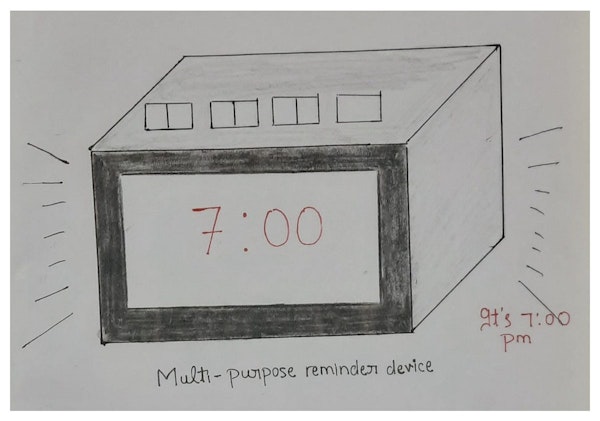 7:00
It's 7:00
pm
Multi-purpose reminder device